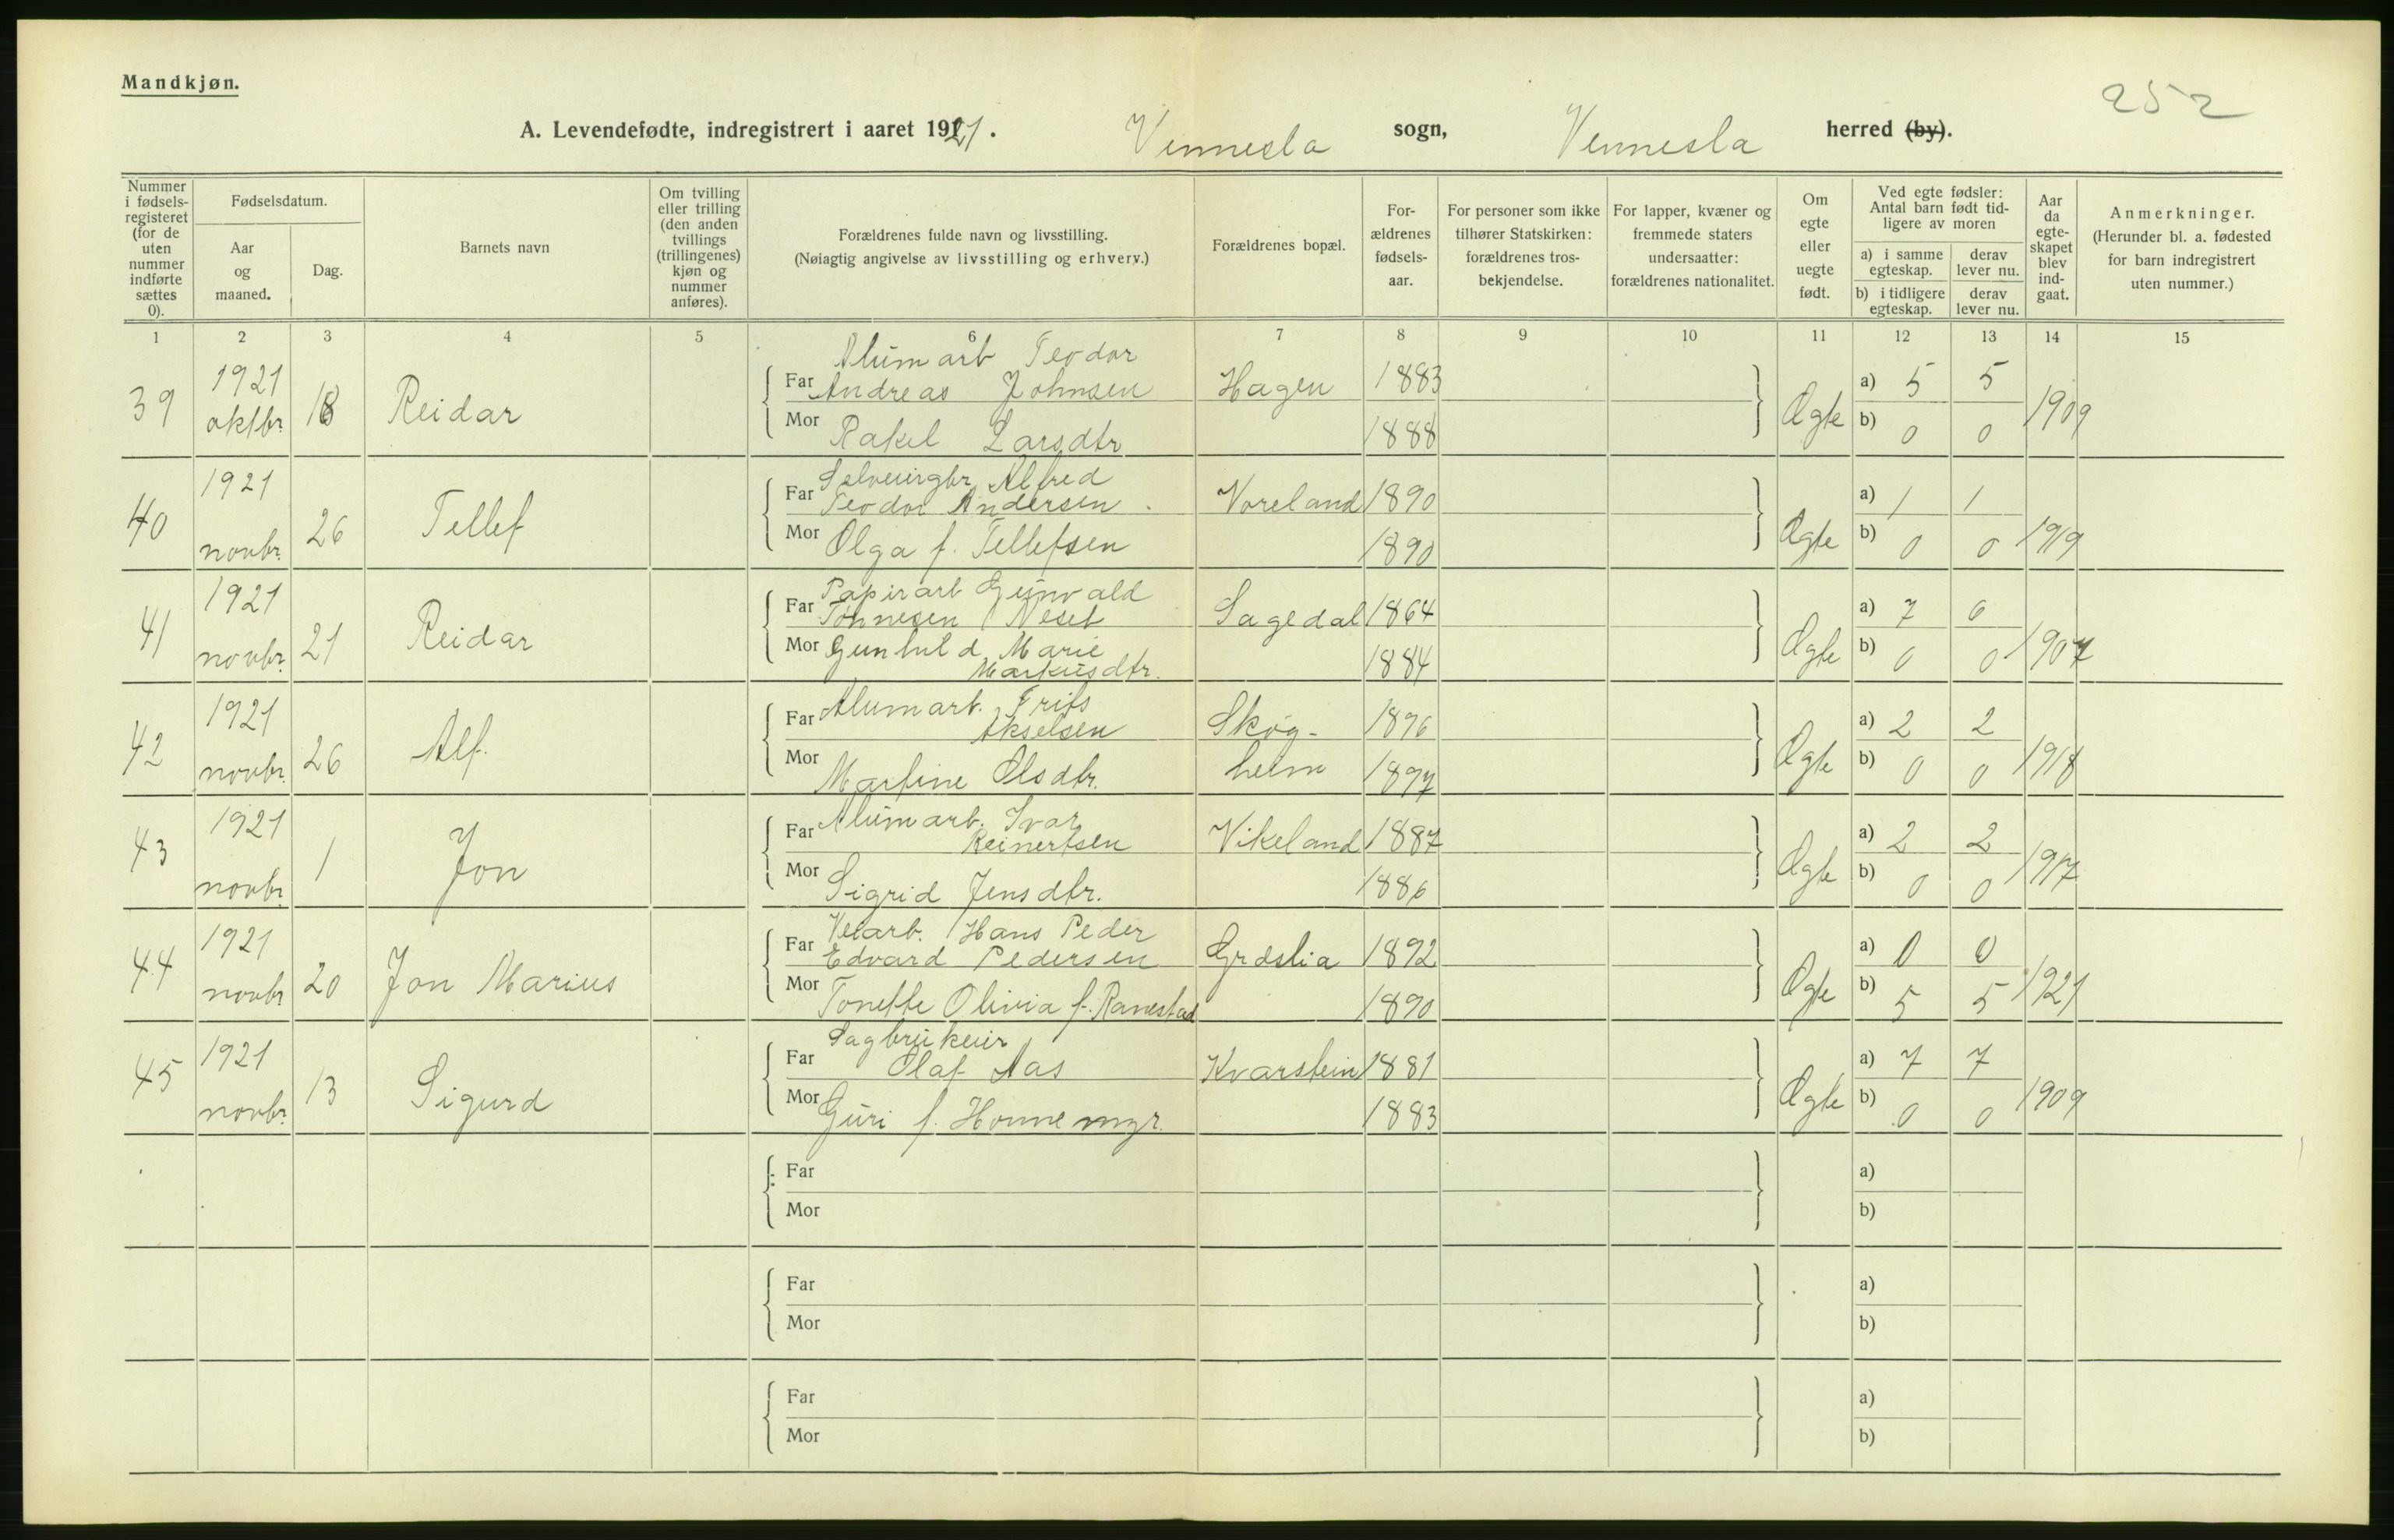 Mandkjøn.
252
A. Levendefødte, indregistrert i aaret 1921. Vennesla sogn, Vennesla herred (by).
Nummer i fødselsregisteret (for de uten nummer indførte sættes 0).
Fødselsdatum.
Aar og maaned.
Dag.
Barnets navn
Om tvilling eller trilling (den anden tvillings (trillingenes) kjøn og nummer anføres).
Forældrenes fulde navn og livsstilling.
(Nøiagtig angivelse av livsstilling og erhverv.)
Forældrenes bopæl.
Forældrenes fødselsaar.
For personer som ikke tilhører Statskirken: forældrenes trosbekjendelse.
For lapper, kvæner og fremmede staters undersaatter: forældrenes nationalitet.
Om egte eller uegte født.
Ved egte fødsler: Antal barn født tidligere av moren
a) i samme egteskap. derav lever nu.
b) i tidligere egteskap. derav lever nu.
Aar da egteskapet blev indgaat.
Anmerkninger.
(Herunder bl. a. fødested for barn indregistrert uten nummer.)
1 2 3 4 5 6 7 8 9 10 11 12 13 14 15
39 1921 oktbr. 18 Reidar
Alum arb Teodor
Far Andreas Johnsen Hagen 1883 a) 5 5
Mor Rakel Larsdtr 1888 Ægte b) 0 0 1909
40 1921 novbr. 26 Tellef
Selveiergbr. Alfred
Far Teodor Andersen. Voreland 1890 a) 1 1
Mor Olga f. Tellefsen 1890 Ægte b) 0 0 1919
41 1921 novbr. 21 Reidar
Papirarb Gunvald
Far Tønnesen Neset Sagedal 1864 a) 7 6
Mor Gunhild Marie
Markusdtr. 1884 Ægte b) 0 0 1907
42 1921 novbr. 26 Alf.
Far Alumarb. Frits
Akselsen Skog- 1896 a) 2 2
Mor Martine Olsdtr. heim 1897 Ægte b) 0 0 1918
43 1921 novbr. 1 Jon
Far Alumarb. Ivar
Reinertsen Vikeland 1887 a) 2 2
Mor Sigrid Jensdtr. 1886 Ægte b) 0 0 1917
44 1921 novbr 20 Jon Marius
Veiarb. Hans Peder
Far Edvard Pedersen Græslia 1892 a) 0 0
Mor Tonette Olivia f. Ranestad 1890 Ægte b) 5 5 1921
45 1921 novbr. 13 Sigurd
Sagbrukeier
Far Olaf Aas Kvarstein 1881 a) 7 7
Mor Guri f. Honnemyr. 1883 Ægte b) 0 0 1909
Far a)
Mor b)
Far a)
Mor b)
Far a)
Mor b)